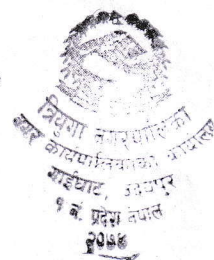 त्रियुगा नगरपालिका
नगर कार्यपालिकाको कार्यालय
गाईघाट, उदयपुर
१ नं. प्रदेश नेपाल
२०७४